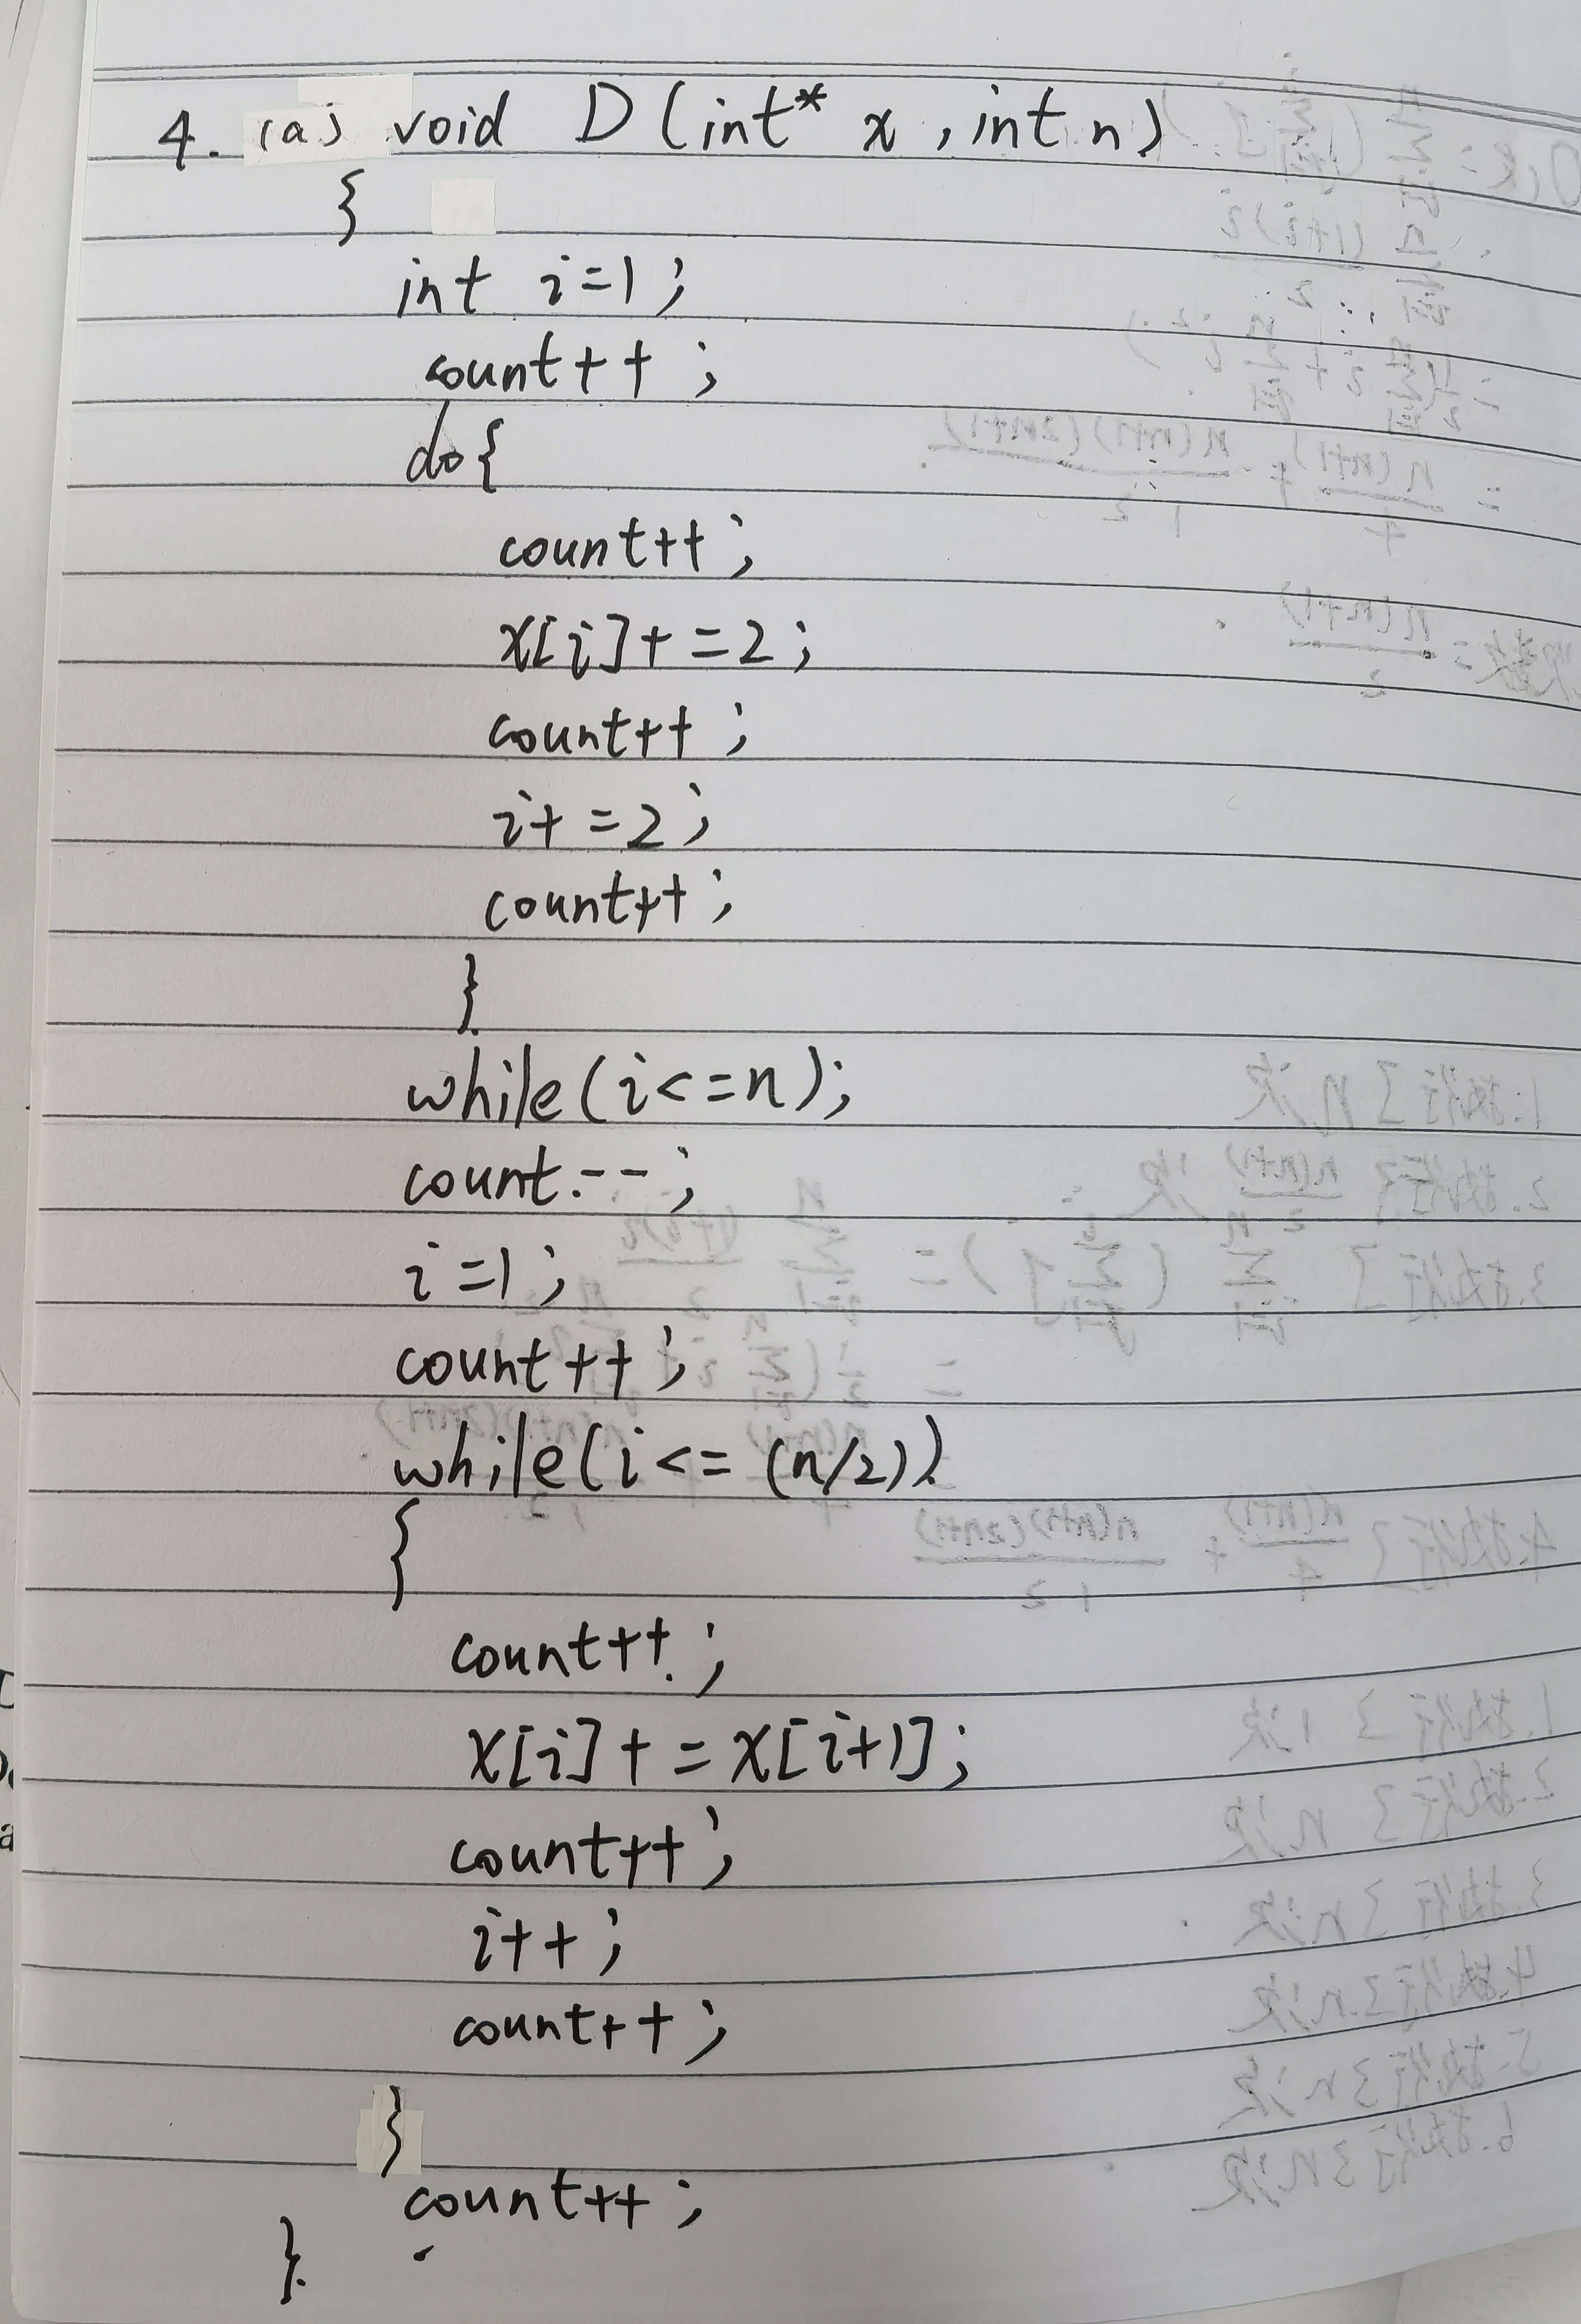 4. (a) void D (int* x, int n)
{
int i=1;
count++;
do{
count++;
x[i]+=2;
count++;
i+=2;
count++;
}
while(i<=n);
count--;
i=1;
count++;
while(i<=(n/2))
{
count++;
x[i]+=x[i+1];
count++;
i++;
count++;
}
count++;
}